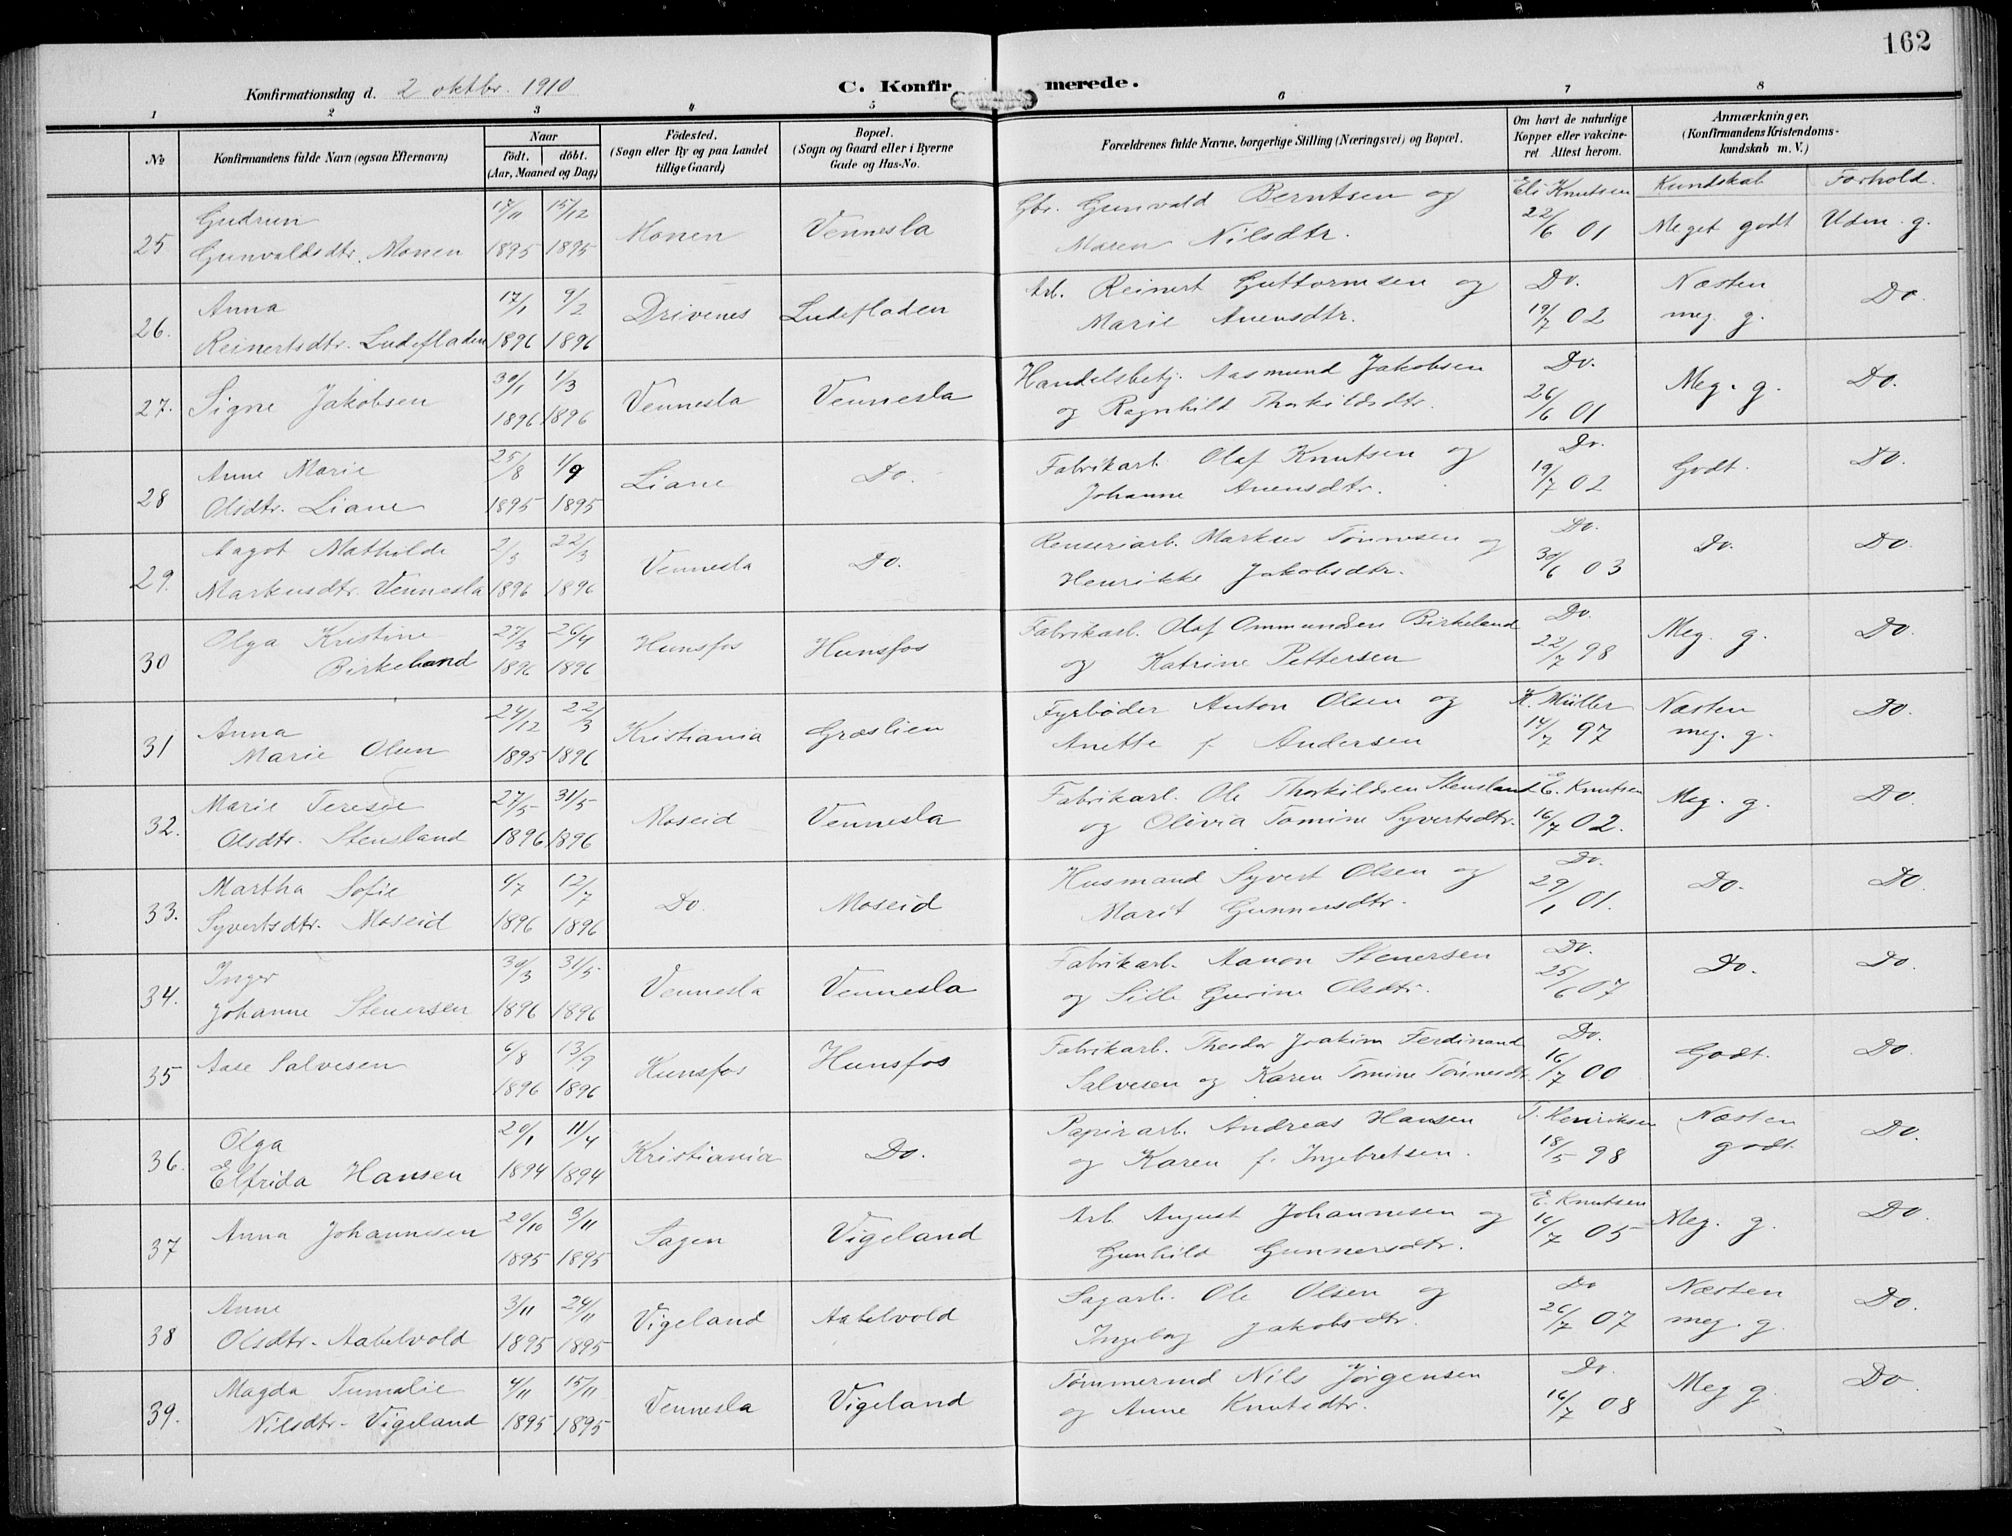 162
Konfirmationsdag d. 2 oktbr. 1910 C. Konfirmerede.
1 2 3 4 5 6 7 8
№ Konfirmandens fulde Navn (ogsaa Efternavn) Naar födt. döbt. (Aar, Maaned og Dag) Födested. (Sogn eller By og paa Landet tillige Gaard) Bopæl. (Sogn og Gaard eller i Byerne Gade og Hus-No. Forældrenes fulde Navne, borgerlige Stilling (Næringsvei) og Bopæl. Om havt de naturlige Kopper eller vakcineret Attest herom. Anmærkninger. (Konfirmandens Kristendomskundskab m. V.)
Kundskab Forhold.
Gudrun 17/11 15/12 Gbr. Gunvald Berntsen og Eli Knutsen
25 Gunvaldsdtr. Monen 1895 1895 Monen Vennesla Maren Nilsdtr. 22/6 01 Meget godt Udm. g.
Anna 17/1 9/2 Arb. Reinert Guttormsen og Do. Næsten
26. Reinertsdtr. Ludefladen 1896 1896 Drivenes Ludefladen Marie Anensdtr. 19/7 02 meg. g. Do
30/1 1/3 Handelsbetj. Aasmund Jakobsen Do.
27. Signe Jakobsen 1896 1896 Vennesla Vennesla og Ragnhild Thorkildsdtr. 26/6 01 Meg. g. Do.
Anne Marie 25/8 1/9 Fabrikarb. Olaf Knutsen og Do.
28 Olsdtr. Liane 1895 1895 Liane Do. Johanne Anensdtr. 19/7 02 Godt. Do.
Aagot Mathilde 2/3 22/3 Renseriarb. Markus Tønnesen og Do.
29. Markusdtr. Vennesla 1896 1896 Vennesla Do. Henrikke Jakobsdtr. 30/6 03 Do. Do.
Olga Kristine 27/3 26/4 Fabrikarb. Olaf Ommundsen Birkeland Do.
30 Birkeland 1896 1896 Hunsfos Hunsfos og Katrine Pettersen 22/7 98 Meg. g. Do.
Anna 24/12 22/3 Fyrbøder Anton Olsen og K. Müller Næsten
31 Marie Olsen 1895 1896 Kristiania Græslien Anette f. Andersen 14/7 97 meg. g. Do.
Marie Teresie 27/5 31/5 Fabrikarb. Ole Thorkildsen Stensland E. Knutsen
32. Olsdtr. Stensland 1896 1896 Moseid Vennesla og Olivia Tomine Syvertsdtr. 16/7 02. Meg. g. Do.
Martha Sofie 4/7 12/7 Husmand Syvert Olsen og Do.
33. Syvertsdtr. Moseid 1896 1896 Do. Moseid Marit Gunnersdtr. 29/1 01. Do. Do.
Inger 30/3 31/5 Fabrikarb. Aanon Stenersen Do.
34. Johanne Stenersen 1896 1896 Vennesla Vennesla og Sille Gurine Olsdtr. 25/6 07 Do. Do.
6/8 13/9 Fabrikarb. Theodor Joakim Ferdinand Do.
35 Aase Salvesen 1896 1896 Hunsfos Hunsfos Salvesen og Karen Tomine Tønnesdtr. 16/7 00 Godt. Do.
Olga 20/1 11/4 Papirarb. Andreas Hansen T. Henriksen Næsten
36. Elfrida Hansen 1894 1894 Kristiania Do. og Karen f. Ingebretsen. 18/5 98 godt. Do.
20/10 3/11 Arb. August Johannesen og E. Knutsen
37 Anna Johannesen 1895 1895 Sagen Vigeland Gunhild Gunnersdtr. 16/7 05 Meg. g. Do.
Anne 3/11 24/11 Sagarb. Ole Olsen og Do Næsten
38 Olsdtr. Aabelvold 1895 1895 Vigeland Aabelvold Ingeborg Jakobsdtr. 26/7 07 meg. g. Do.
Magda Tumalie 4/11 15/11 Tømmermd Nils Jørgensen Do.
39. Nilsdtr. Vigeland 1895 1895 Vennesla Vigeland og Anne Knutsdtr. 16/7 08 Meg g. Do